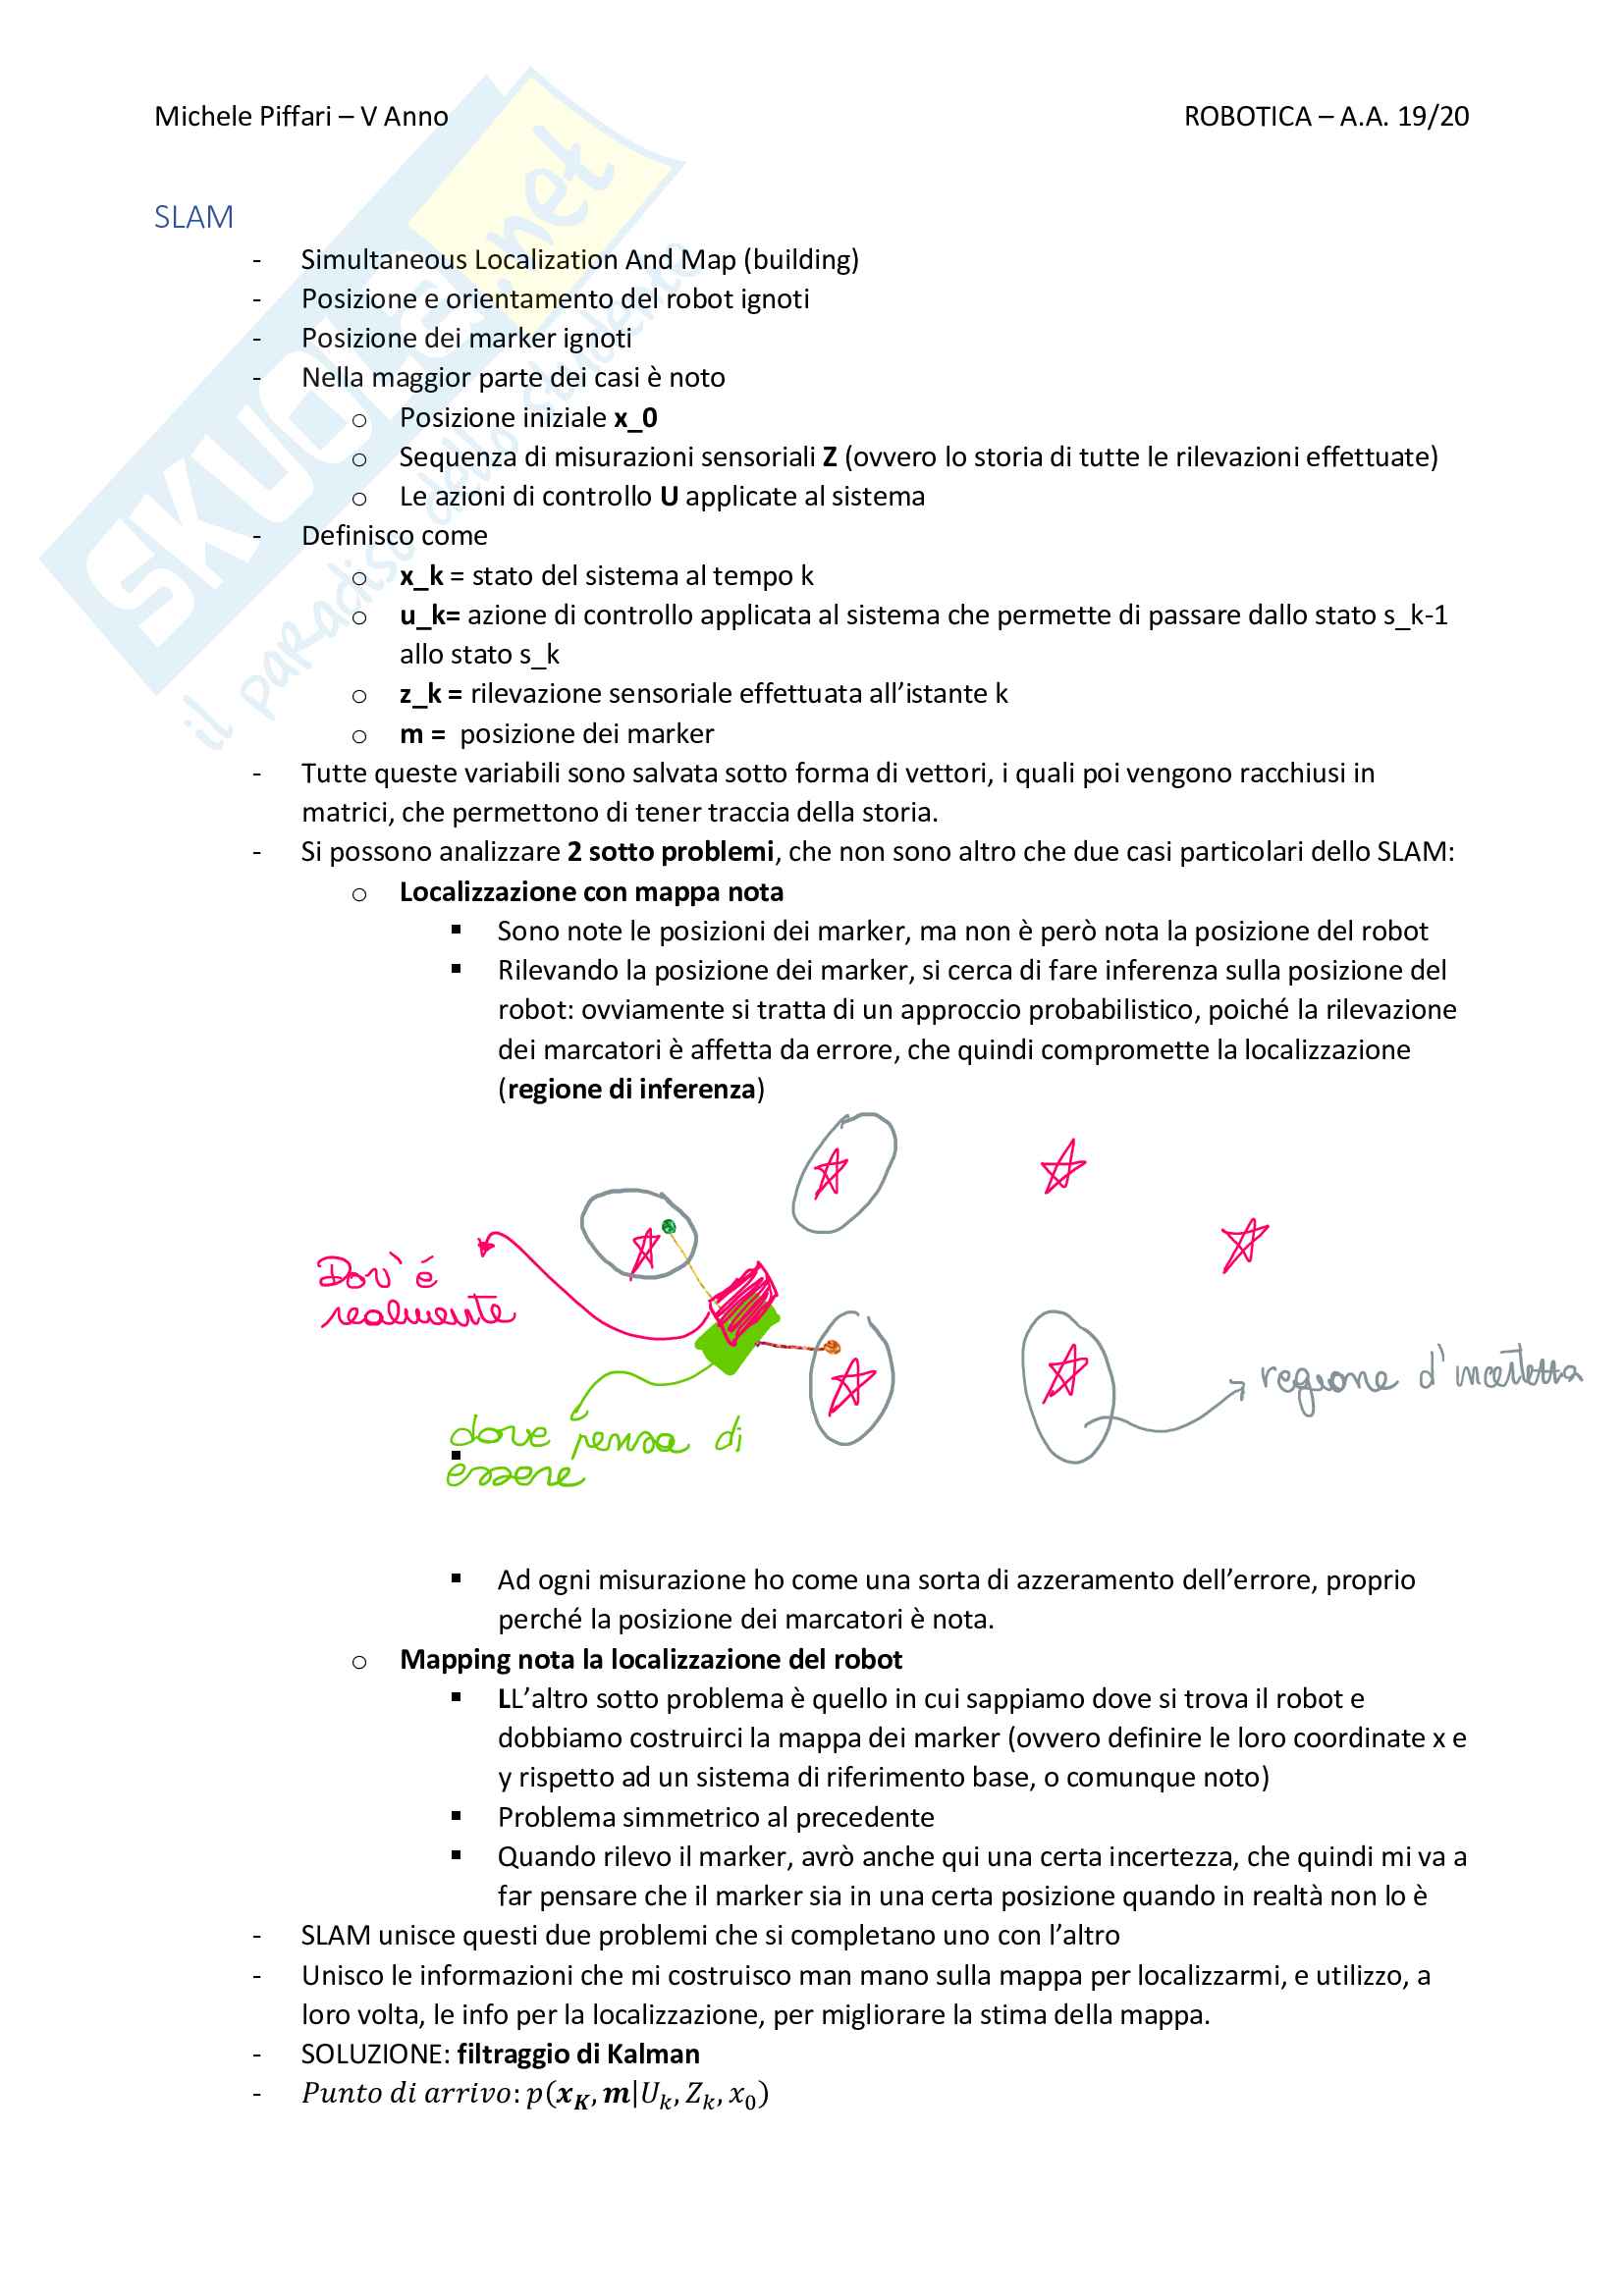 Michele Piffari – V Anno ROBOTICA – A.A. 19/20
SKUOLA.net
il paradiso dello studente
SLAM
- Simultaneous Localization And Map (building)
- Posizione e orientamento del robot ignoti
- Posizione dei marker ignoti
- Nella maggior parte dei casi è noto
o Posizione iniziale x_0
o Sequenza di misurazioni sensoriali Z (ovvero lo storia di tutte le rilevazioni effettuate)
o Le azioni di controllo U applicate al sistema
- Definisco come
o x_k = stato del sistema al tempo k
o u_k= azione di controllo applicata al sistema che permette di passare dallo stato s_k-1
allo stato s_k
o z_k = rilevazione sensoriale effettuata all’istante k
o m = posizione dei marker
- Tutte queste variabili sono salvata sotto forma di vettori, i quali poi vengono racchiusi in
matrici, che permettono di tener traccia della storia.
- Si possono analizzare 2 sotto problemi, che non sono altro che due casi particolari dello SLAM:
o Localizzazione con mappa nota
▪ Sono note le posizioni dei marker, ma non è però nota la posizione del robot
▪ Rilevando la posizione dei marker, si cerca di fare inferenza sulla posizione del
robot: ovviamente si tratta di un approccio probabilistico, poiché la rilevazione
dei marcatori è affetta da errore, che quindi compromette la localizzazione
(regione di inferenza)
Dov'é
realmente
regione d'incertezza
dove pensa di
▪ essere
▪ Ad ogni misurazione ho come una sorta di azzeramento dell’errore, proprio
perché la posizione dei marcatori è nota.
o Mapping nota la localizzazione del robot
▪ LL’altro sotto problema è quello in cui sappiamo dove si trova il robot e
dobbiamo costruirci la mappa dei marker (ovvero definire le loro coordinate x e
y rispetto ad un sistema di riferimento base, o comunque noto)
▪ Problema simmetrico al precedente
▪ Quando rilevo il marker, avrò anche qui una certa incertezza, che quindi mi va a
far pensare che il marker sia in una certa posizione quando in realtà non lo è
- SLAM unisce questi due problemi che si completano uno con l’altro
- Unisco le informazioni che mi costruisco man mano sulla mappa per localizzarmi, e utilizzo, a
loro volta, le info per la localizzazione, per migliorare la stima della mappa.
- SOLUZIONE: filtraggio di Kalman
- Punto di arrivo: p(x_K, m|U_k, Z_k, x_0)